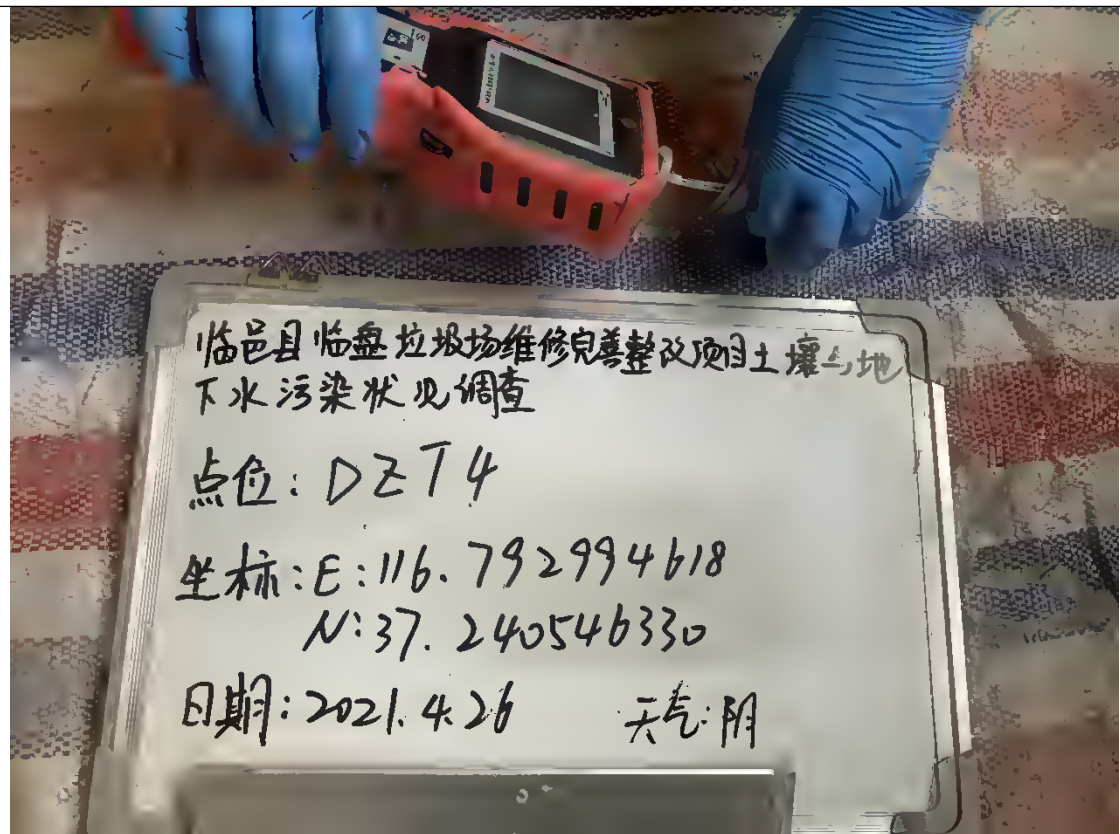 临邑县临盘垃圾场维修完善整改项目土壤与地
下水污染状况调查
点位:DZT4
坐标:E:116.792994618
N:37.240546330
日期:2021.4.26 天气:阴